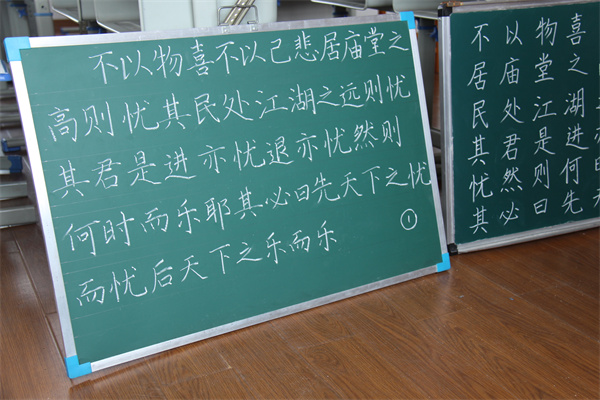 不以物喜不以己悲居庙堂之
高则忧其民处江湖之远则忧
其君是进亦忧退亦忧然则
何时而乐耶其必曰先天下之忧
而忧后天下之乐而乐
①
不以物喜
居庙堂之
民处江湖
其君是进
忧然则何
其必曰先